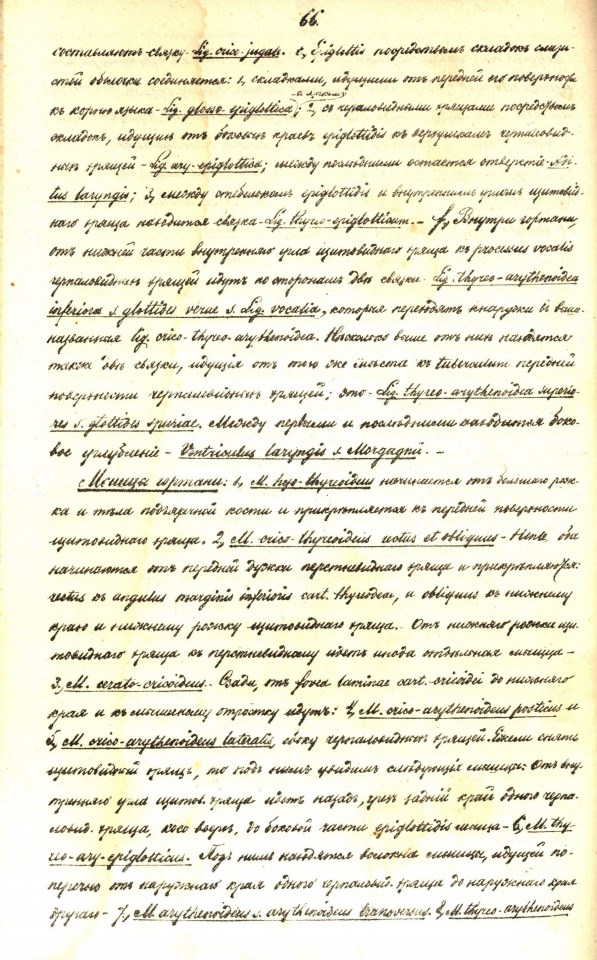 66.
составляютъ связку Lig. crico-jugale. e, Epiglottis посредствомъ складокъ слизи-
стой оболочки соединяется: 1, складками, идущими отъ передней его поверхности
къ корню языка - Lig. glosso-epiglottica; 2, съ черпаловидными хрящами посредствомъ
складокъ, идущихъ отъ боковыхъ краевъ epiglottidis къ верхушкамъ черпаловид-
ныхъ хрящей - Lig. ary-epiglottica; между послѣдними остается отверстіе - Adi-
tus laryngis; 3, между стебелькомъ epiglottidis и внутреннимъ угломъ щитовид-
наго хряща находится связка - Lig. thyreo-epiglotticum. - f, Внутри гортани,
отъ нижней части внутренняго угла щитовиднаго хряща къ processus vocalis
черпаловидныхъ хрящей идутъ по сторонамъ двѣ связки Lig. thyreo-arythenoidea
inferiora s. glottides verae s. Lig. vocalia, которыя переходятъ кнаружи въ выше-
названная lig. crico-thyreo-arythenoidea. Нѣсколько выше отъ нихъ находятся
также двѣ связки, идущія отъ того же мѣста къ tuberculum передней
поверхности черпаловидныхъ хрящей; это - Lig. thyreo-arythenoidea superio-
res s. glottides spuriae. Между первыми и послѣдними находится боко-
вое углубленіе - Ventriculus laryngis s. Morgagnii. -
с Мышцы гортани: 1, M. hyo-thyreoideus начинается отъ большаго рож-
ка и тѣла подъязычной кости и прикрѣпляется къ передней поверхности
щитовиднаго хряща. 2, M. crico-thyreoideus rectus et obliquus - Henle оба
начинаются отъ передней дужки перстневиднаго хряща и прикрѣпляются:
rectus къ angulus marginis inferioris cart. thyreoideae, и obliquus къ нижнему
краю и нижнему рожку щитовиднаго хряща. Отъ нижняго рожка щи-
товиднаго хряща къ перстневидному идетъ иногда отдѣльная мышца -
3, M. cerato-cricoideus. Сзади, отъ fovea laminae cart. cricoidei до нижняго
края и къ мышечному отростку идутъ: 4, M. crico-arythenoideus posticus и
5, M. crico-arythenoideus lateralis, сбоку черпаловидныхъ хрящей. Ежели снять
щитовидный хрящъ, то подъ нимъ увидимъ слѣдующія мышцы: Отъ вну-
тренняго угла щитов. хряща идетъ назадъ, чрезъ задній край одного черпа-
ловид. хряща, косо вверхъ, до боковой части epiglottidis мышца - 6, M. thy-
reo-ary-epiglotticus. Подъ нимъ находятся волокна мышцы, идущей по-
перечно отъ наружнаго края одного черпаловид. хряща до наружнаго края
другаго - 7, M. arythenoideus s. arythenoideus transversus. 8, M. thyreo-arythenoideus